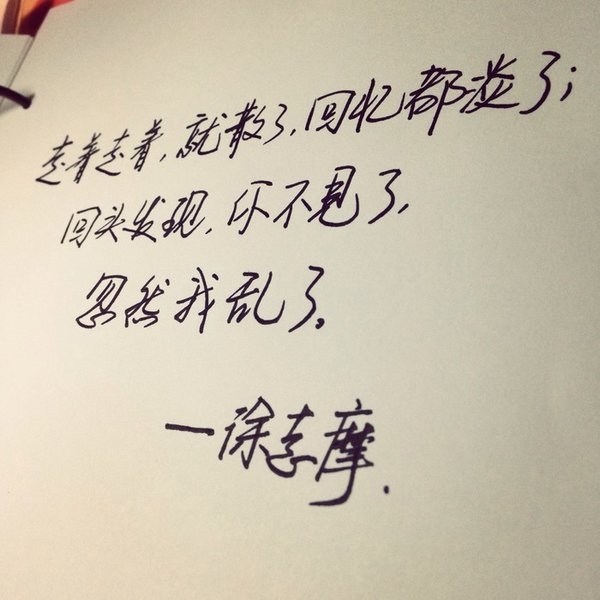 走着走着,就散了,回忆都淡了;
回头发现,你不见了,
忽然我乱了。
一徐志摩.